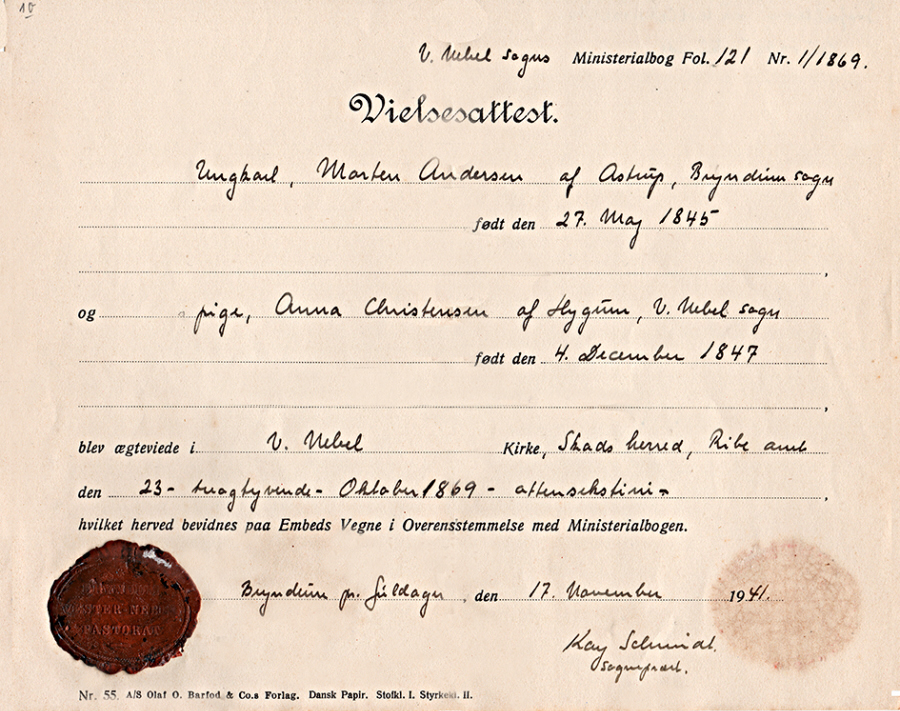 10
V. Nebel sogns Ministerialbog Fol. 121 Nr. 1/1869.
Vielsesattest.
Ungkarl, Morten Andersen af Astrup, Bryndum sogn
født den 27. Maj 1845
,
og pige, Anna Christensen af Hygum, V. Nebel sogn
født den 4. December 1847
,
blev ægteviede i V. Nebel Kirke, Skads herred, Ribe amt
den 23 - treogtyvende - Oktober 1869 - attensekstini - ,
hvilket herved bevidnes paa Embeds Vegne i Overensstemmelse med Ministerialbogen.
VESTER NEBEL
PASTORAT
Bryndum pr. Guldager, den 17. November 1941.
Kay Schmidt.
Sognepræst.
Nr. 55. A/S Olaf O. Barfod & Co.s Forlag. Dansk Papir. Stofkl. I. Styrkekl. II.